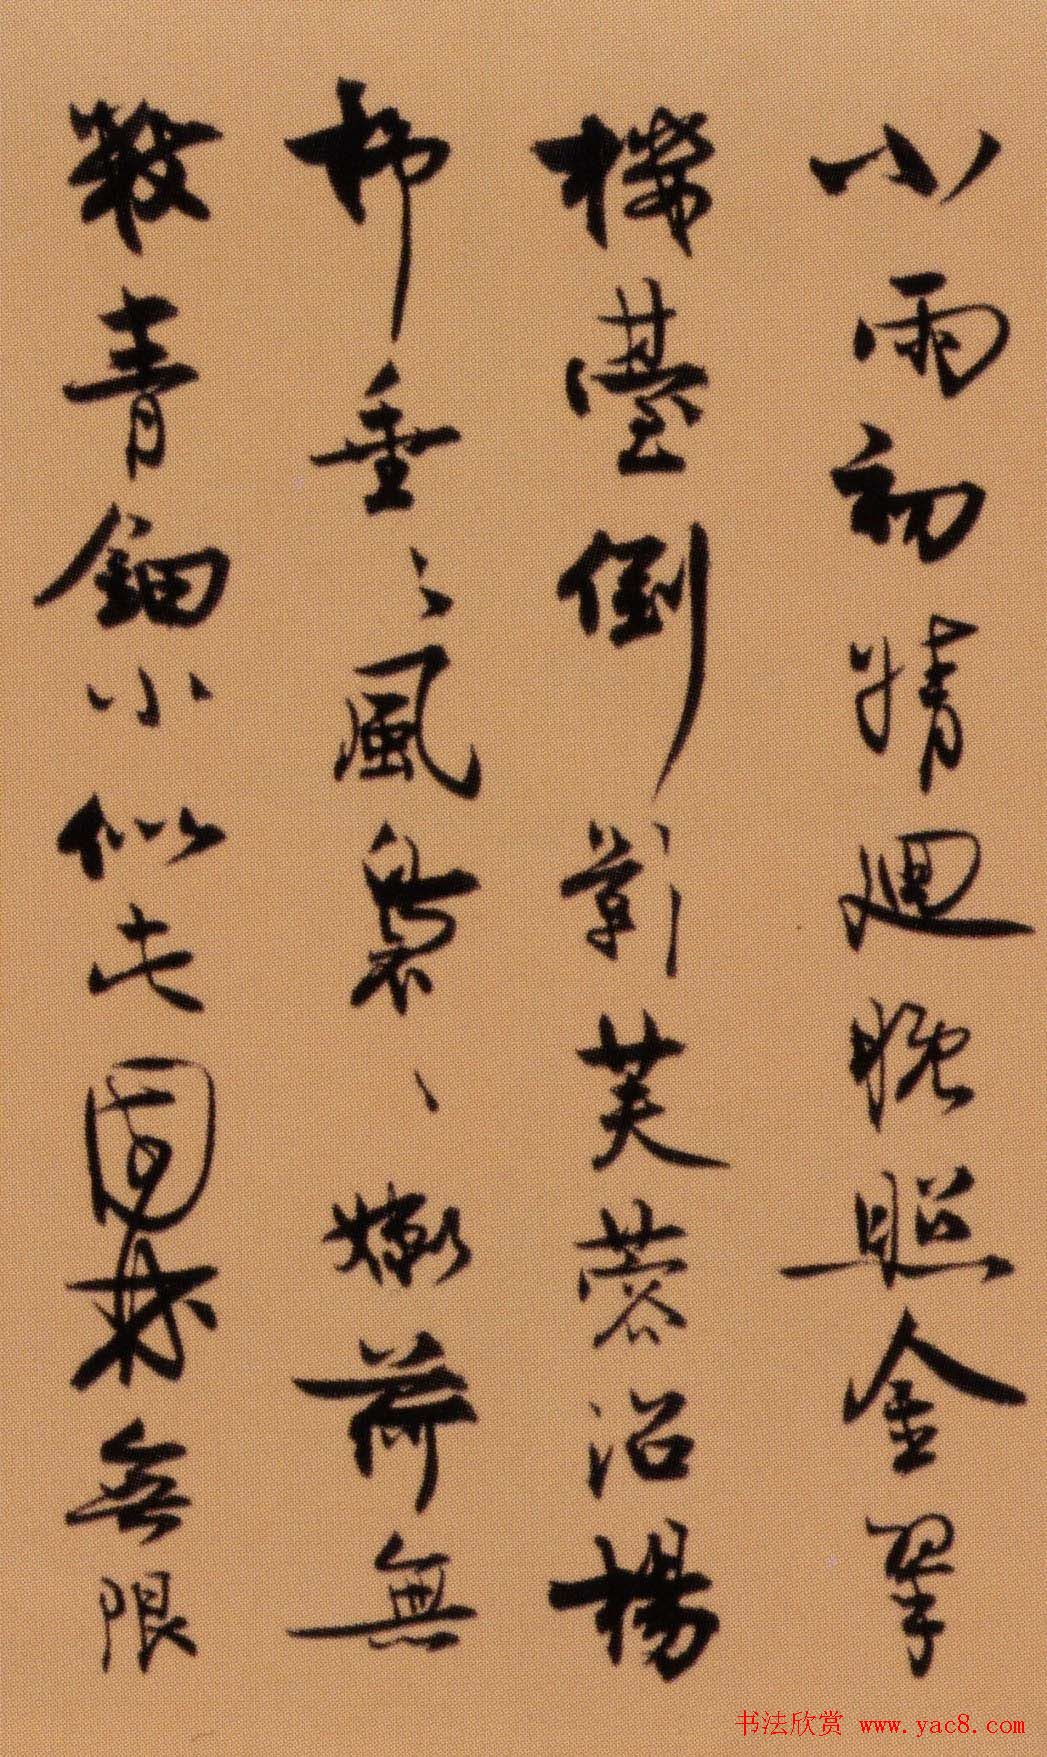 小雨初晴迴晚照金翠
樓臺倒影芙蓉沼楊
柳垂〻風裊〻嫩荷無
數青鈿小似此園林無限
书法欣赏 www.yac8.com